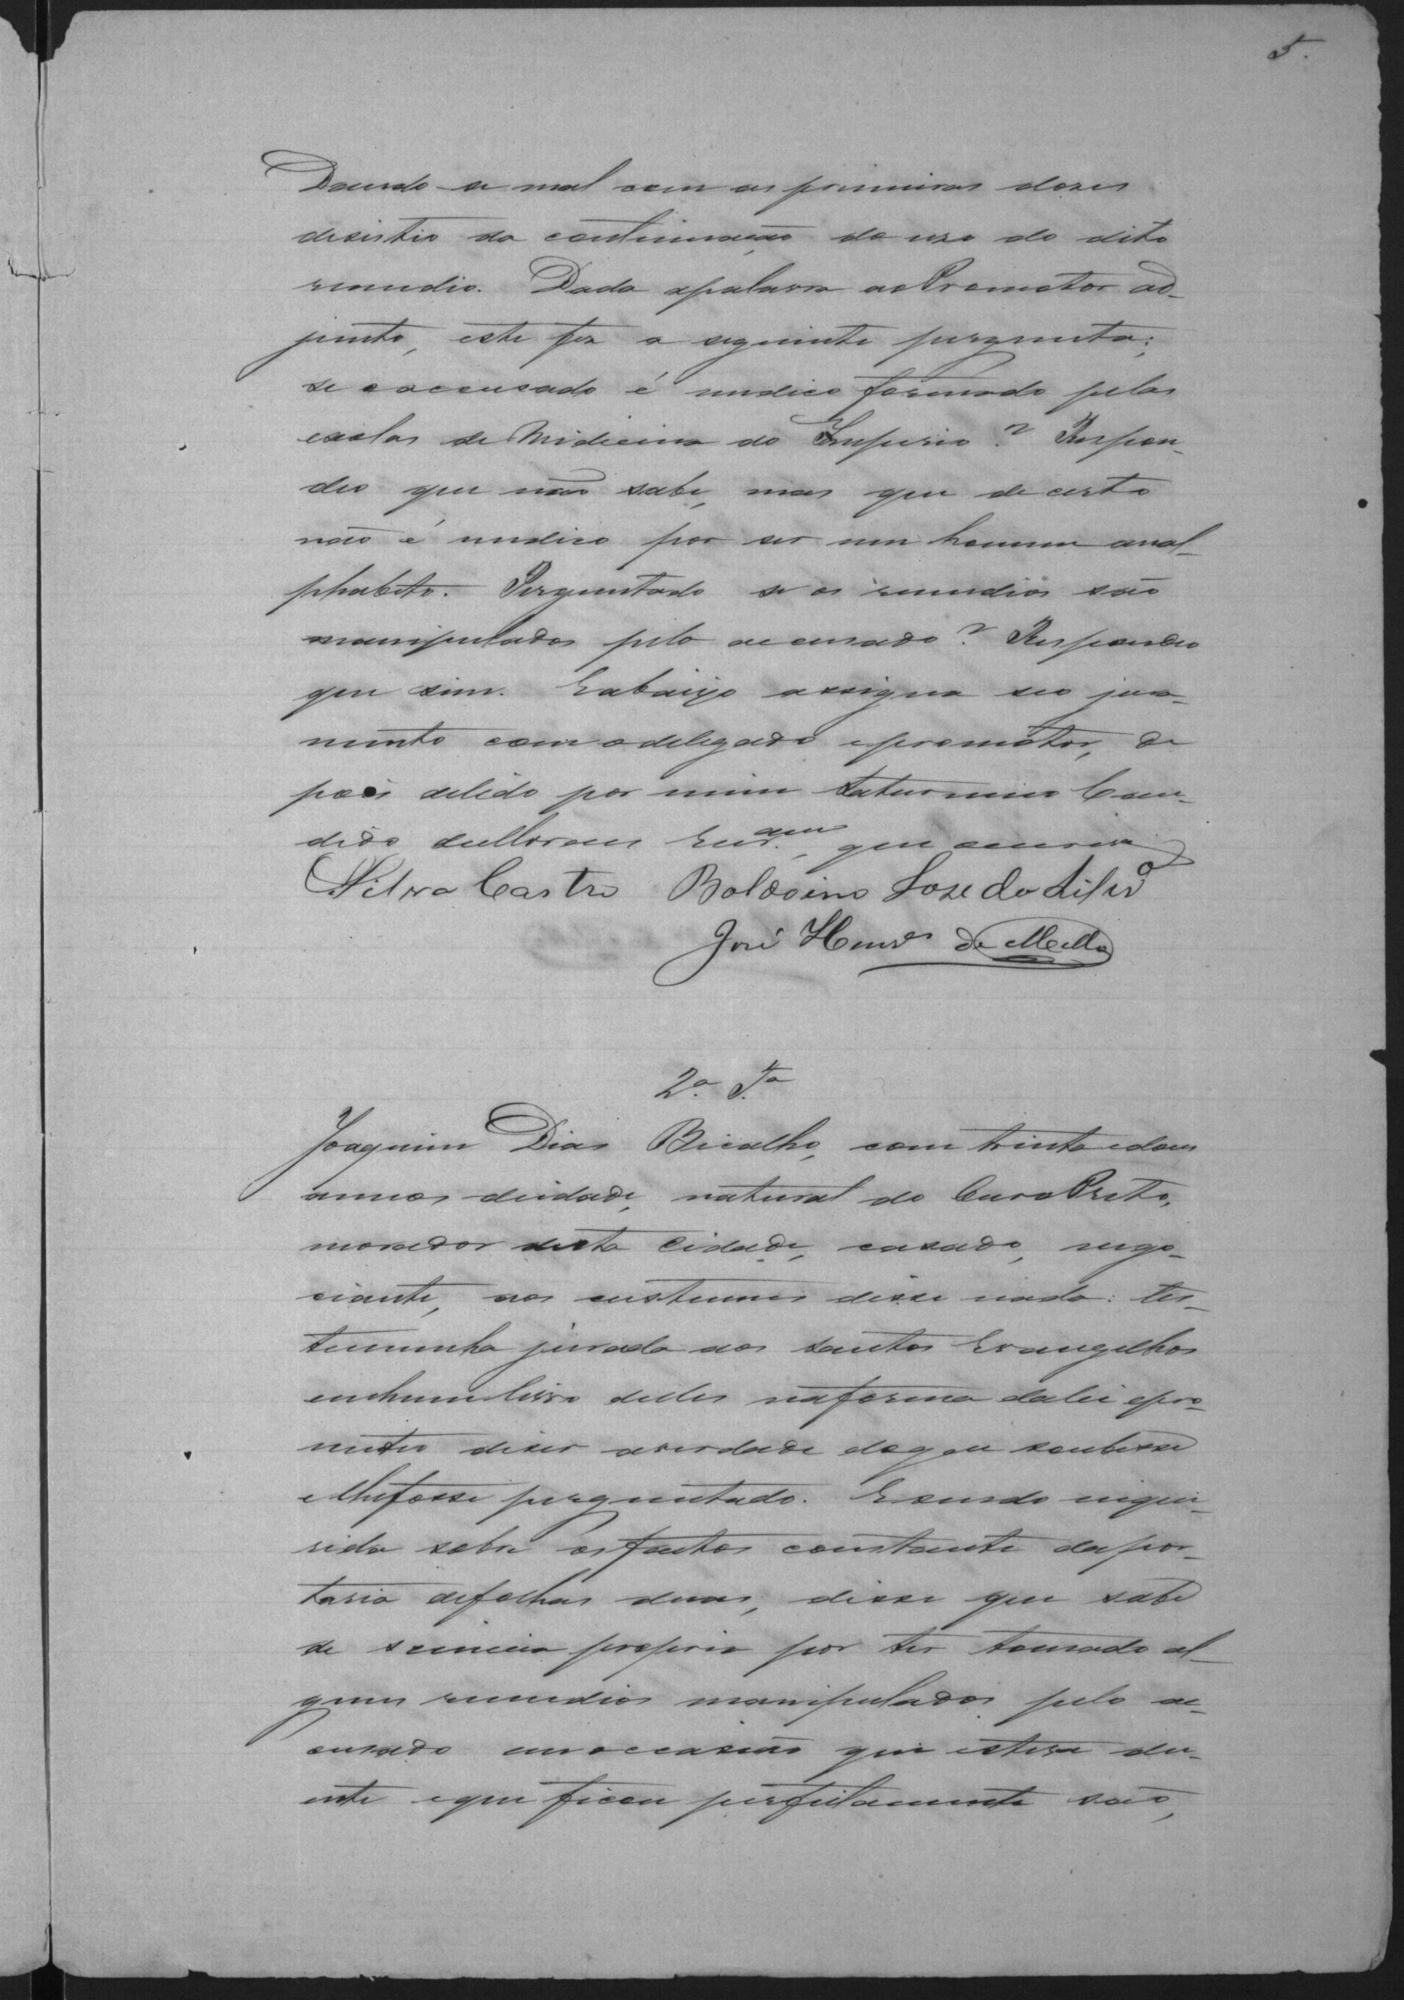 5.
Dando se mal com as primeiras doses
desistio da continuação do uso do dito
remedio. Dada apalavra ao Promotor ad-
junto, este fez a seguinte pergunta:,
se oaccusado é medico formado pelas
escolas de Medicina do Imperio? Respon-
deo que não sabe, mas que de certo
não é medico por ser um homem anal-
phabeto. Perguntado se os remedios são
manipulados pelo accusado? Respondeo
que sim. Eabaixo assigna seo jura-
mento com odelegado epromotor, de
pois delido por mim Saturnino Can-
dido de Moraes Escr.am, que escrevi
Silva Castro Boldoino Jose da Silva
José Henrs de Mello
2.a T.a
Joaquim Dias Bicalho, com trinta edous
annos deidade, natural do Ouro Preto,
morador nesta Cidade, casado, nego-
ciante, aos custumes disse nada: tes-
temunha jurada aos santos Evangelhos
emhum livro delles naforma dalei epro-
meteo diser averdade doque soubesse
elhefosse perguntado. Esendo inqui-
rida sobre osfactos constante dapor-
taria defolhas duas, disse que sabe
de sciencia propria por ter tomado al-
guns remedios manipulados pelo ac-
cusado em occasião que esteve do-
ente eque ficou perfeitamente são,